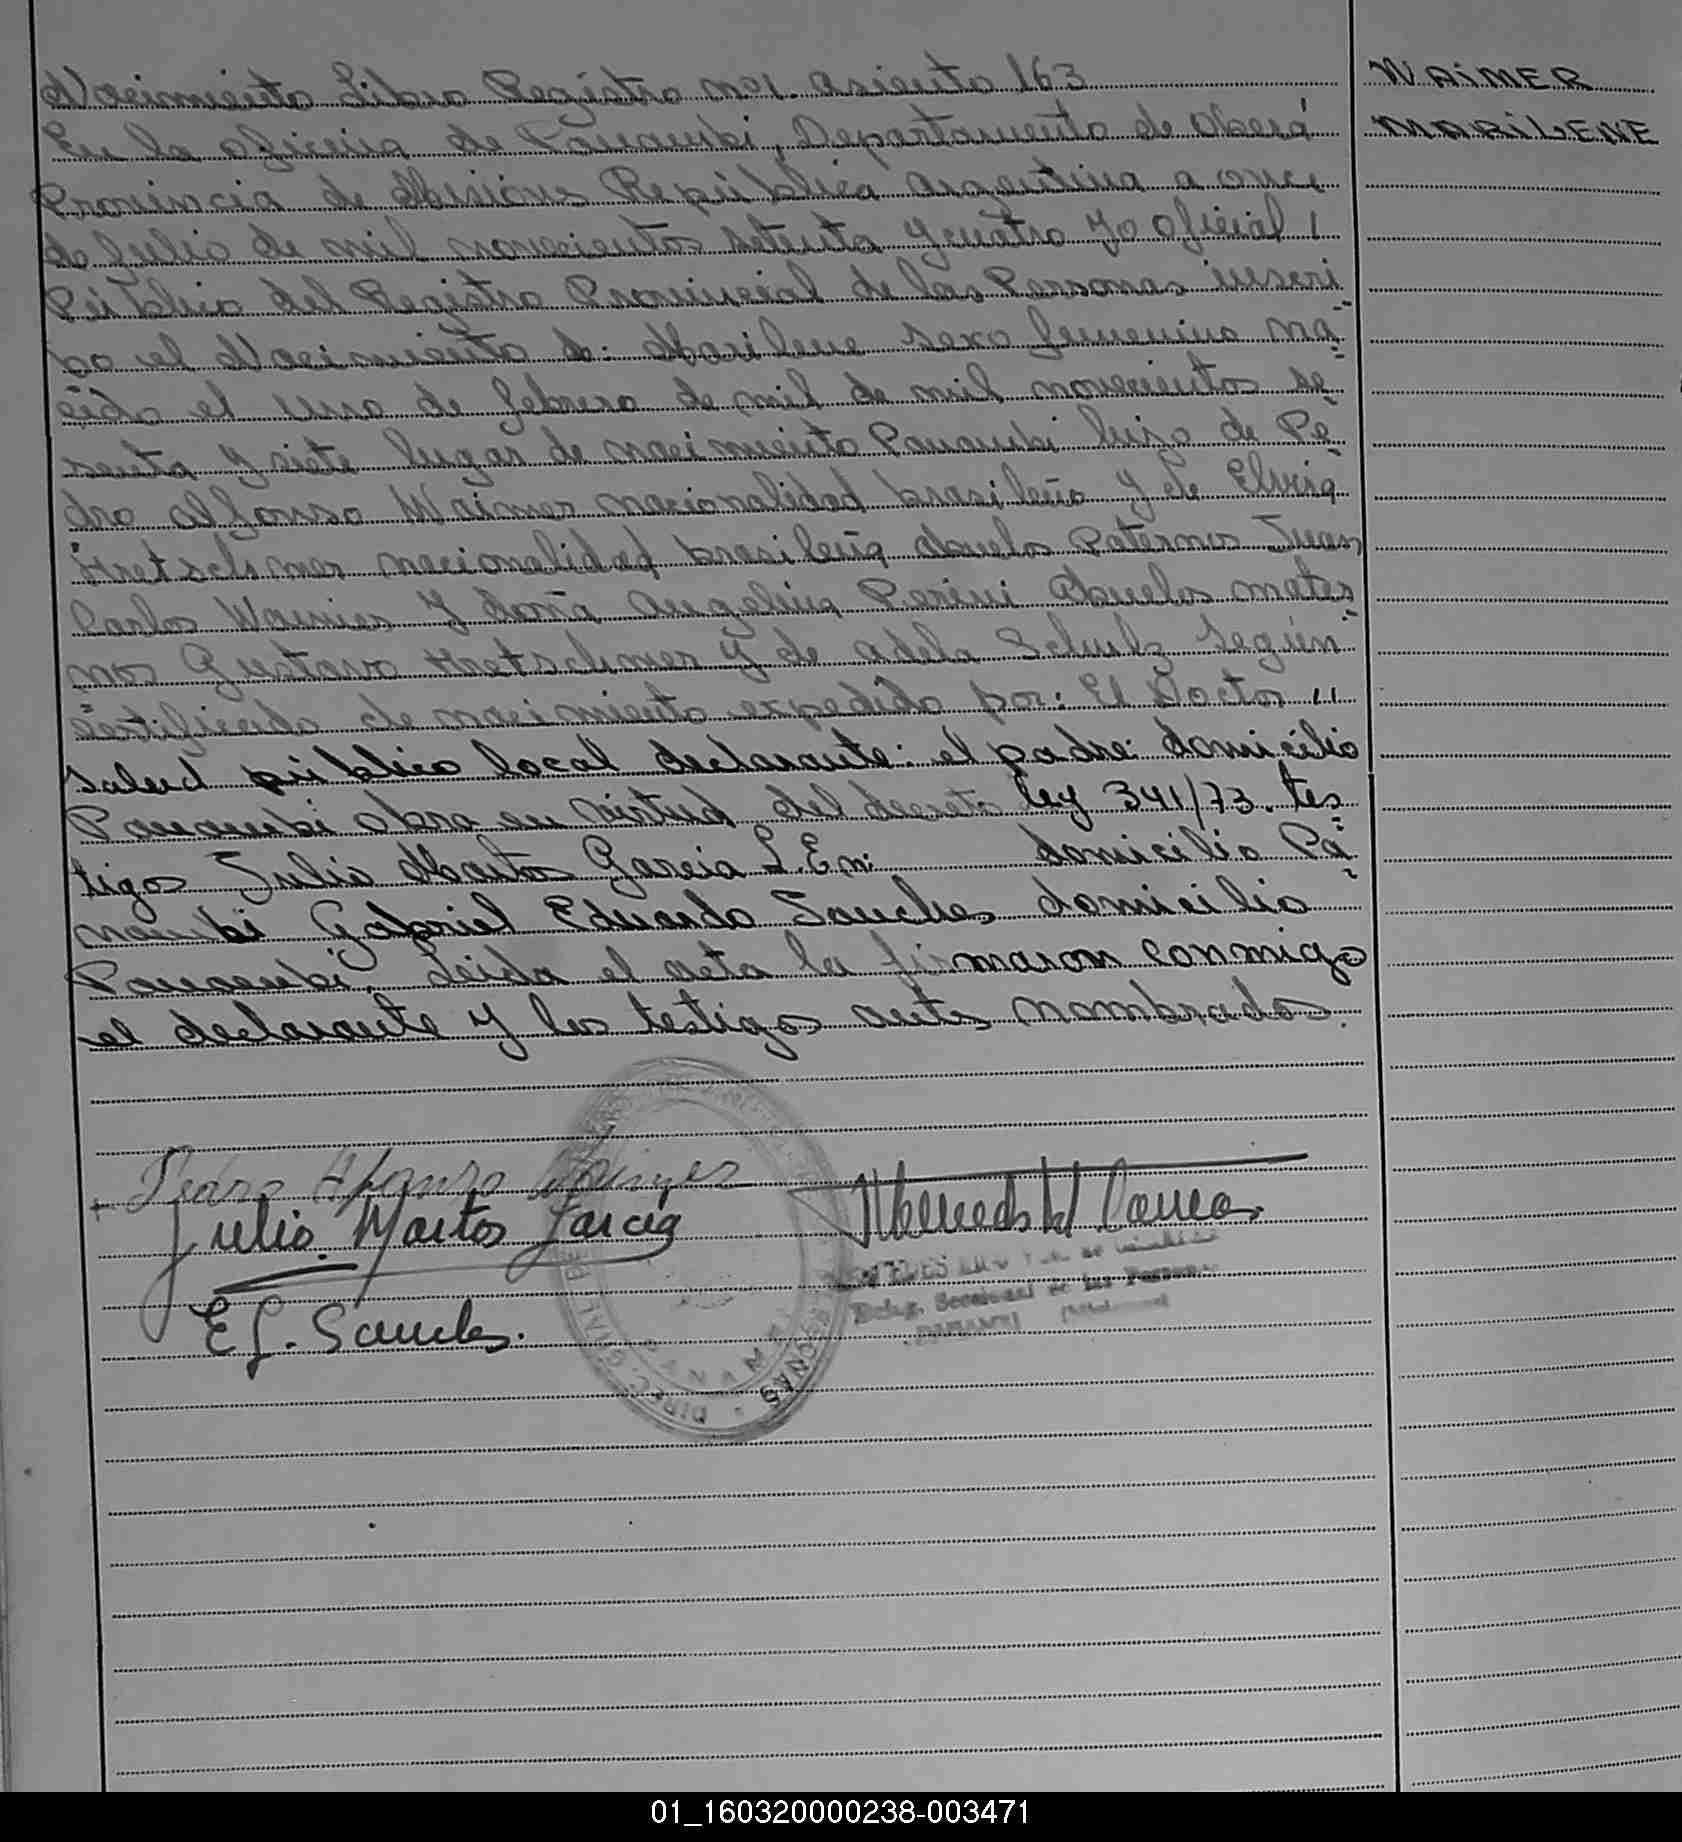 Nacimiento Libro Registro nº1. asiento 163
WAIMER
MARILENE
En la oficina de Panambi, Departamento de Oberá
Provincia de Misiones Republica Argentina a once
de Julio de mil novecientos setenta y cuatro yo oficial /
Publico del Registro Provincial de las Personas inscri
bo el Nacimiento de: Marilene sexo femenino na
cido el uno de febrero de mil de mil novecientos se
senta y siete lugar de nacimiento Panambi hijo de Pe
dro Alfonso Waimer nacionalidad brasileño y de Elvira
Kretschmer nacionalidad brasileña abuelos Paternos Juan
Carlos Waimer y doña Angelina Perini abuelos mater
nos Gustavo Kretschmer y de adela Schulz Según
certificado de nacimiento expedido por: El Doctor //
salud público local declarante: el padre: domicilio
Panambi obra en virtud del decreto ley 341/73. tes
tigos Julio Martos Garcia L.E.nº: domicilio Pa
nambi Gabriel Eduardo Sanches domicilio
Panambi. Leida el acta la firmaron conmigo
el declarante y los testigos antes nombrados.
Pedro Afonso Waimer
Julio Martos Garcia
E G. Sanches.
Deleg. Seccional de las Personas
PANAMBI (Misiones)
DIREC. GRAL. PERSONAS
PANAMBI
01_160320000238-003471